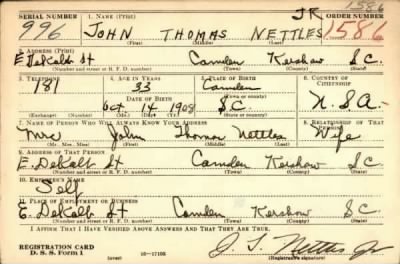 1586
SERIAL NUMBER 1. NAME (Print) JR ORDER NUMBER
996 JOHN THOMAS NETTLES 1586
(First) (Middle) (Last)
2. ADDRESS (Print)
E. DeKalb St Camden Kershaw S.C.
(Number and street or R. F. D. number) (Town) (County) (State)
3. TELEPHONE 4. AGE IN YEARS 5. PLACE OF BIRTH 6. COUNTRY OF CITIZENSHIP
181 33 Camden
DATE OF BIRTH (Town or county)
Oct 14 1908 S.C U.S.A.
(Mo.) (Day) (Yr.) (State or country)
7. NAME OF PERSON WHO WILL ALWAYS KNOW YOUR ADDRESS 8. RELATIONSHIP OF THAT PERSON
Mrs John Thomas Nettles Wife
(Mr., Mrs., Miss) (First) (Middle) (Last)
9. ADDRESS OF THAT PERSON
E. DeKalb St Camden Kershaw S.C.
(Number and street or R. F. D. number) (Town) (County) (State)
10. EMPLOYER'S NAME
Self
11. PLACE OF EMPLOYMENT OR BUSINESS
E. DeKalb St Camden Kershaw S.C.
(Number and street or R. F. D. number) (Town) (County) (State)
I AFFIRM THAT I HAVE VERIFIED ABOVE ANSWERS AND THAT THEY ARE TRUE.
REGISTRATION CARD
D. S. S. Form 1 (over) 16-17105 J. T. Nettles Jr
(Registrant's signature)